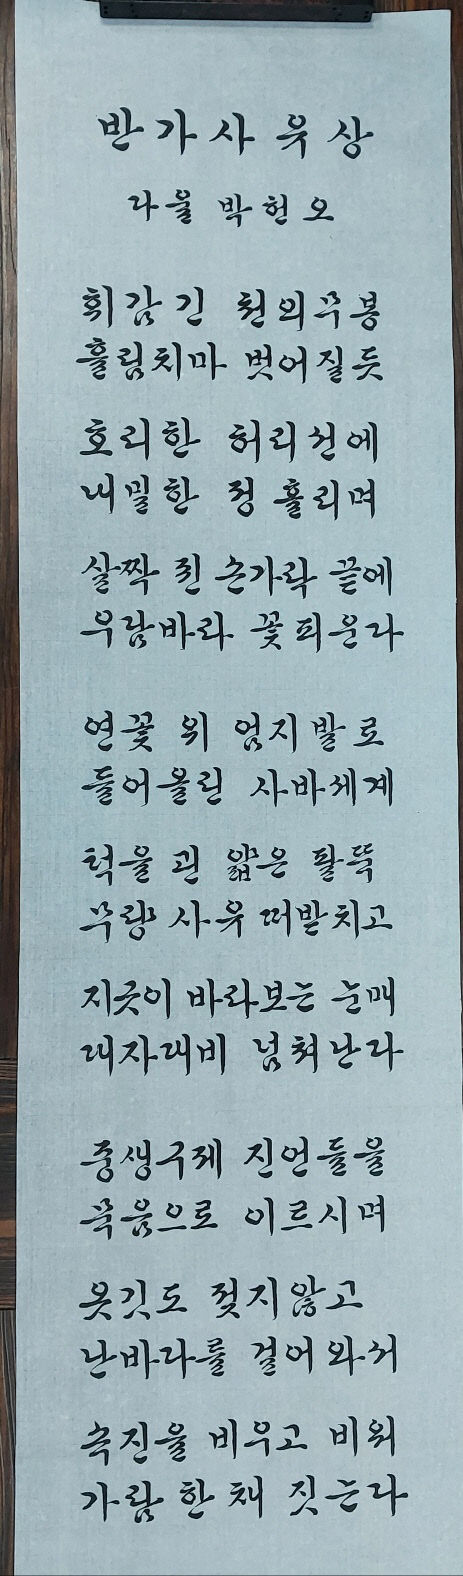 반가사유상
다울 박헌오
휘감긴 천의무봉
흘림치마 벗어질듯
호리한 허리선에
내밀한 정 흘리며
살짝 퀸 손가락 끝에
우담바라 꽃피운다
연꽃 위 엄지발로
들어올린 사바세계
턱을 괸 얇은 팔뚝
무량 사유 떠받치고
지긋이 바라보는 눈매
대자대비 넘쳐난다
중생구제 진언들을
묵음으로 이르시며
옷깃도 젖지않고
난바다를 걸어와서
속진을 비우고 비워
가람 한 채 짓는다